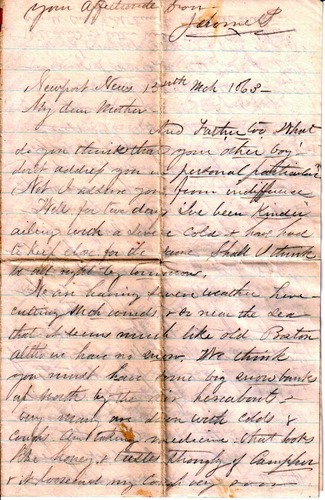 your affectionate Son
Jerome P
Newport News 15th Mch 1863 -
My dear Mother -
And Father too. What
do you think that your other boy
don't address you in personal particular
Not I address you from indifference
Well for two days I've been kinder
ailing with a severe cold & have had
to keep close for it some Shall I think
be all right by tomorrow.
We are having severe weather here -
cutting winds, & so near the sea
that it seems much like old Boston
altho we have no snow. We think
you must have some big snow banks
up north by the hereabout -
very many are down with colds &
coughs I'm taking medicine - that looks
like honey, & tastes strongly of Camphor
& it loosens my cough very soon